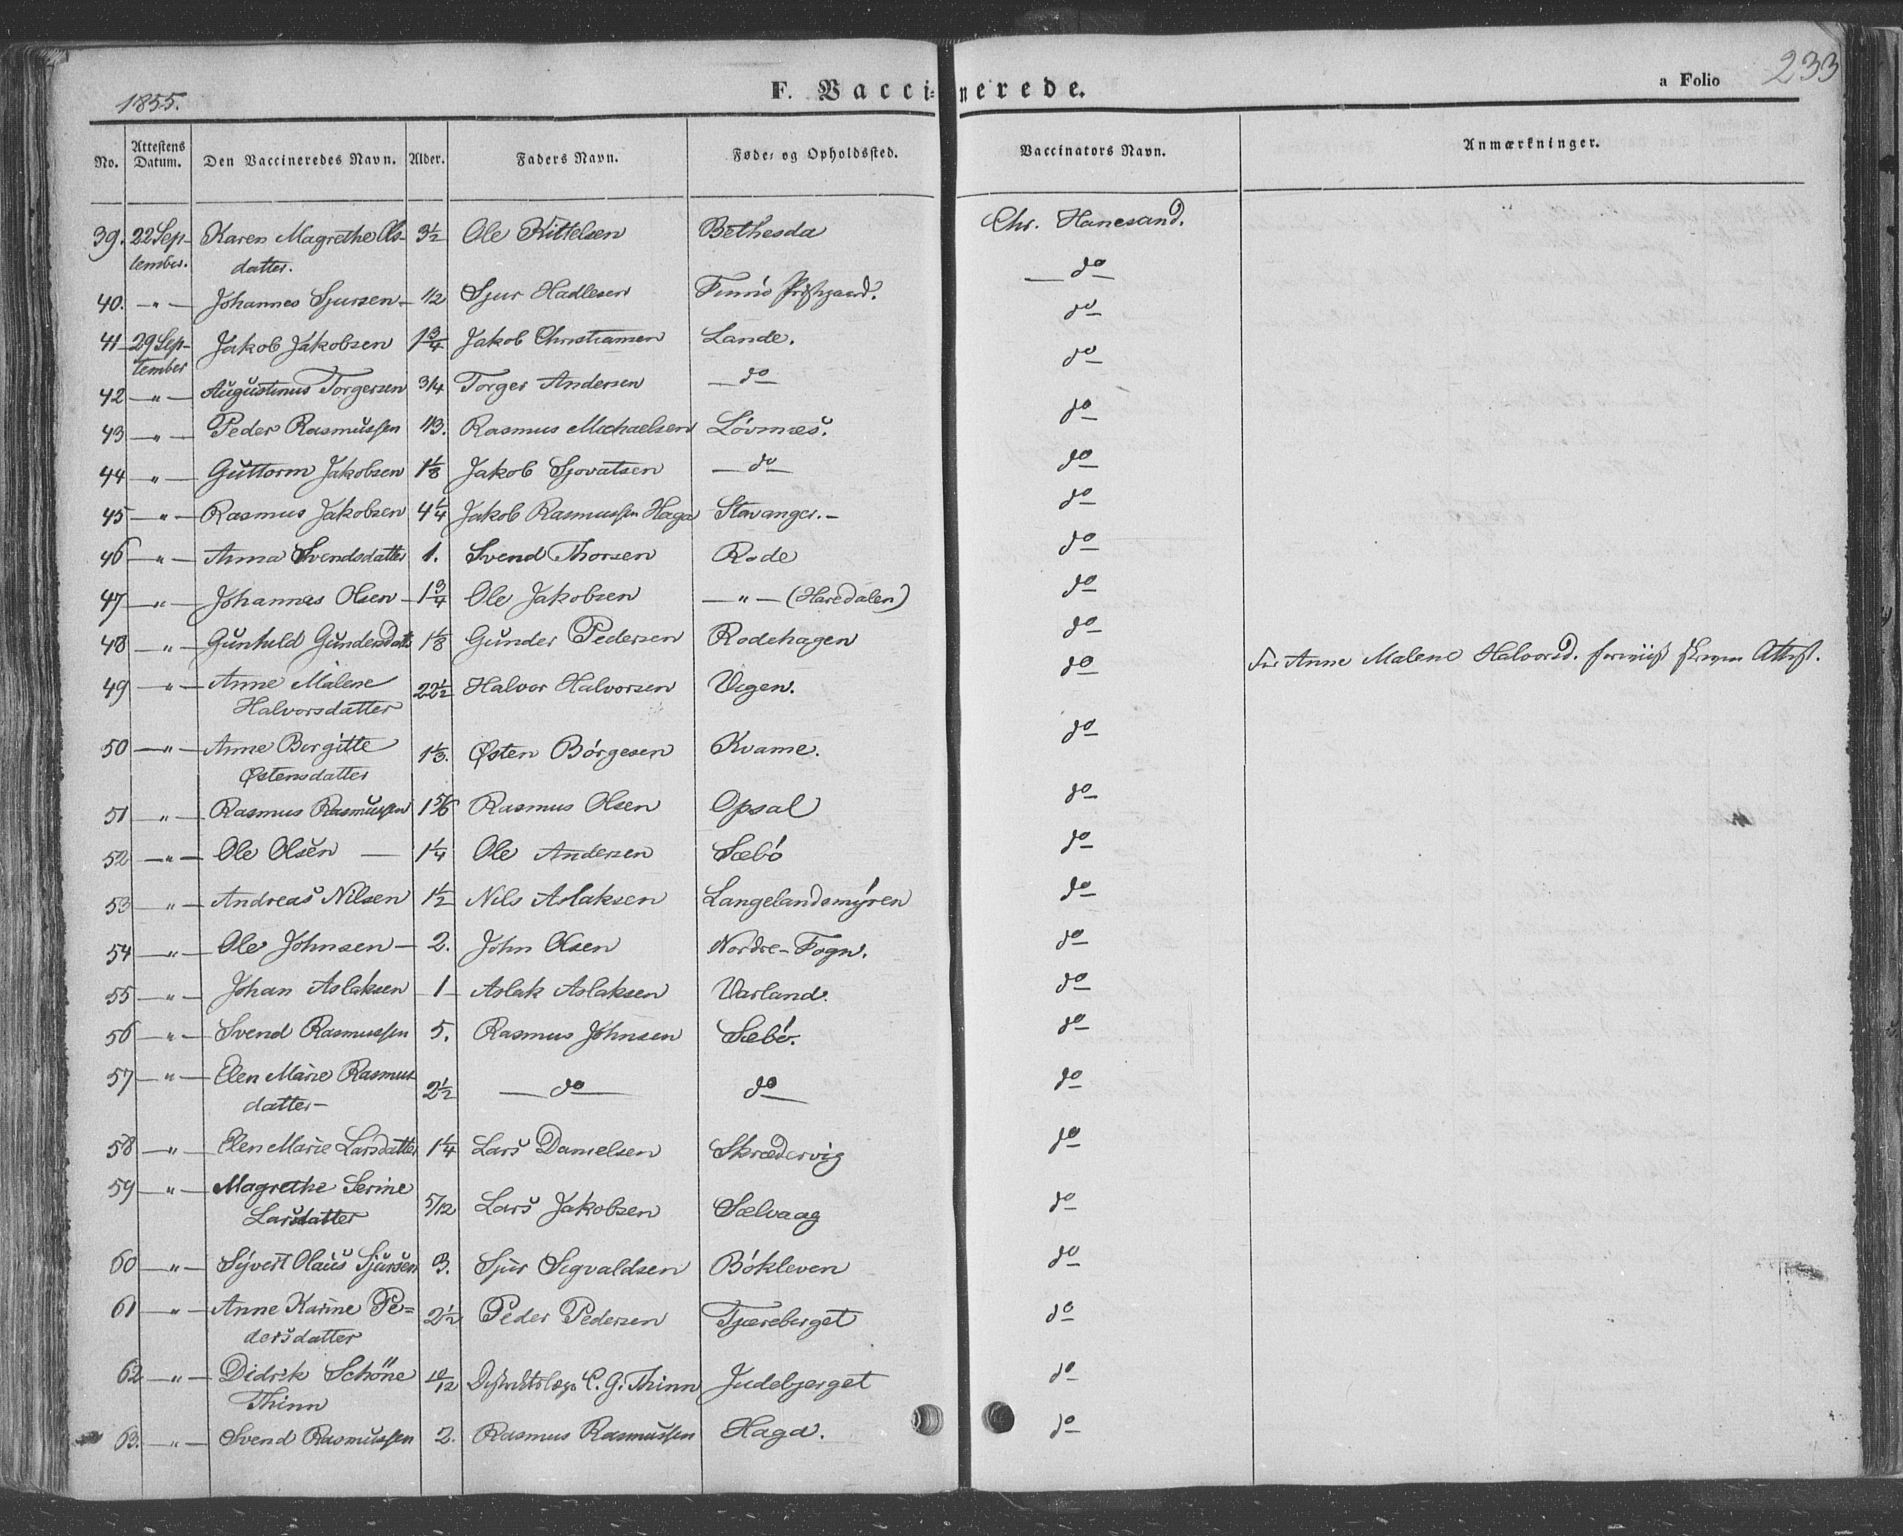 1855. F. Vaccinerede. a Folio 233
No. Attestens Datum. Den Vaccineredes Navn. Alder. Faders Navn. Føde- og Opholdssted. Vaccinators Navn. Anmærkninger.
39. 22 Sep- Karen Magrethe Ols- 3½ Ole Kittelsen Bethesda Chr. Hanesand.
tember. datter.
40. — " — Johannes Sjursen — 1/2 Sjur Hadlesen Finnö Præstgaard. do
41 29 Sep- Jakob Jakobsen 1¾ Jakob Christiansen Lande. do
tember
42 — " — Augustinus Torgersen 3/4 Torger Andersen do do
43 — " — Peder Rasmussen 1/3. Rasmus Michaelsen Lövnæs. do
44 — " — Guttorm Jakobsen 1⅛ Jakob Sjovatsen do do
45 — " — Rasmus Jakobsen 4¼ Jakob Rasmussen Haga Stavanger. — do
46 — " — Anna Svendsdatter 1. Svend Thorsen Rode do
47 — " — Johannes Olsen — 1¾ Ole Jakobsen — " — (Haredalen) do
48 — " — Gunhild Gundersdatt 1⅛ Gunder Pedersen Rodehagen do
49 — " — Anne Malene 22½ Halvor Halvorsen Vigen. do For Anne Malene Halvorsd. Attest.
Halvorsdatter
50 — " — Anne Bergitte 1⅓. Østen Börgesen Kvame. do
Østensdatter
51 — " — Rasmus Rasmussen 1 5/6 Rasmus Olsen Opsal do
52 — " — Ole Olsen — 1¼ Ole Andersen Sæbö do
53 — " — Andreas Nilsen 1½ Nils Aslaksen Langelandsmyren do
54 — " — Ole Johnsen — 2. John Olsen Nordre-Fogn. do
55 — " — Johan Aslaksen — 1 — Aslak Aslaksen Varland. do
56 — " — Svend Rasmussen 5. Rasmus Johnsen Sæbö. do
57 — " — Elen Marie Rasmus 2½ do do do
datter —
58 — " — Elen Marie Larsdatter 1¼ Lars Danielsen Skrædervig do
59 — " — Magrethe Serine 5/12 Lars Jakobsen Sælvaag do
Larsdatter
60 — " — Syvert Olaus Sjursen 3. Sjur Sigvaldsen Bökleven do
61 — " — Anne Karine Pe= 2½ Peder Pedersen Tjæreberget do
dersdatter
62 — " — Didrik Schöne 10/12 Distriktslæge C. G. Thinn Judebjerget do
Thinn
63. — " — Svend Rasmussen 2. Rasmus Rasmussen Haga. do